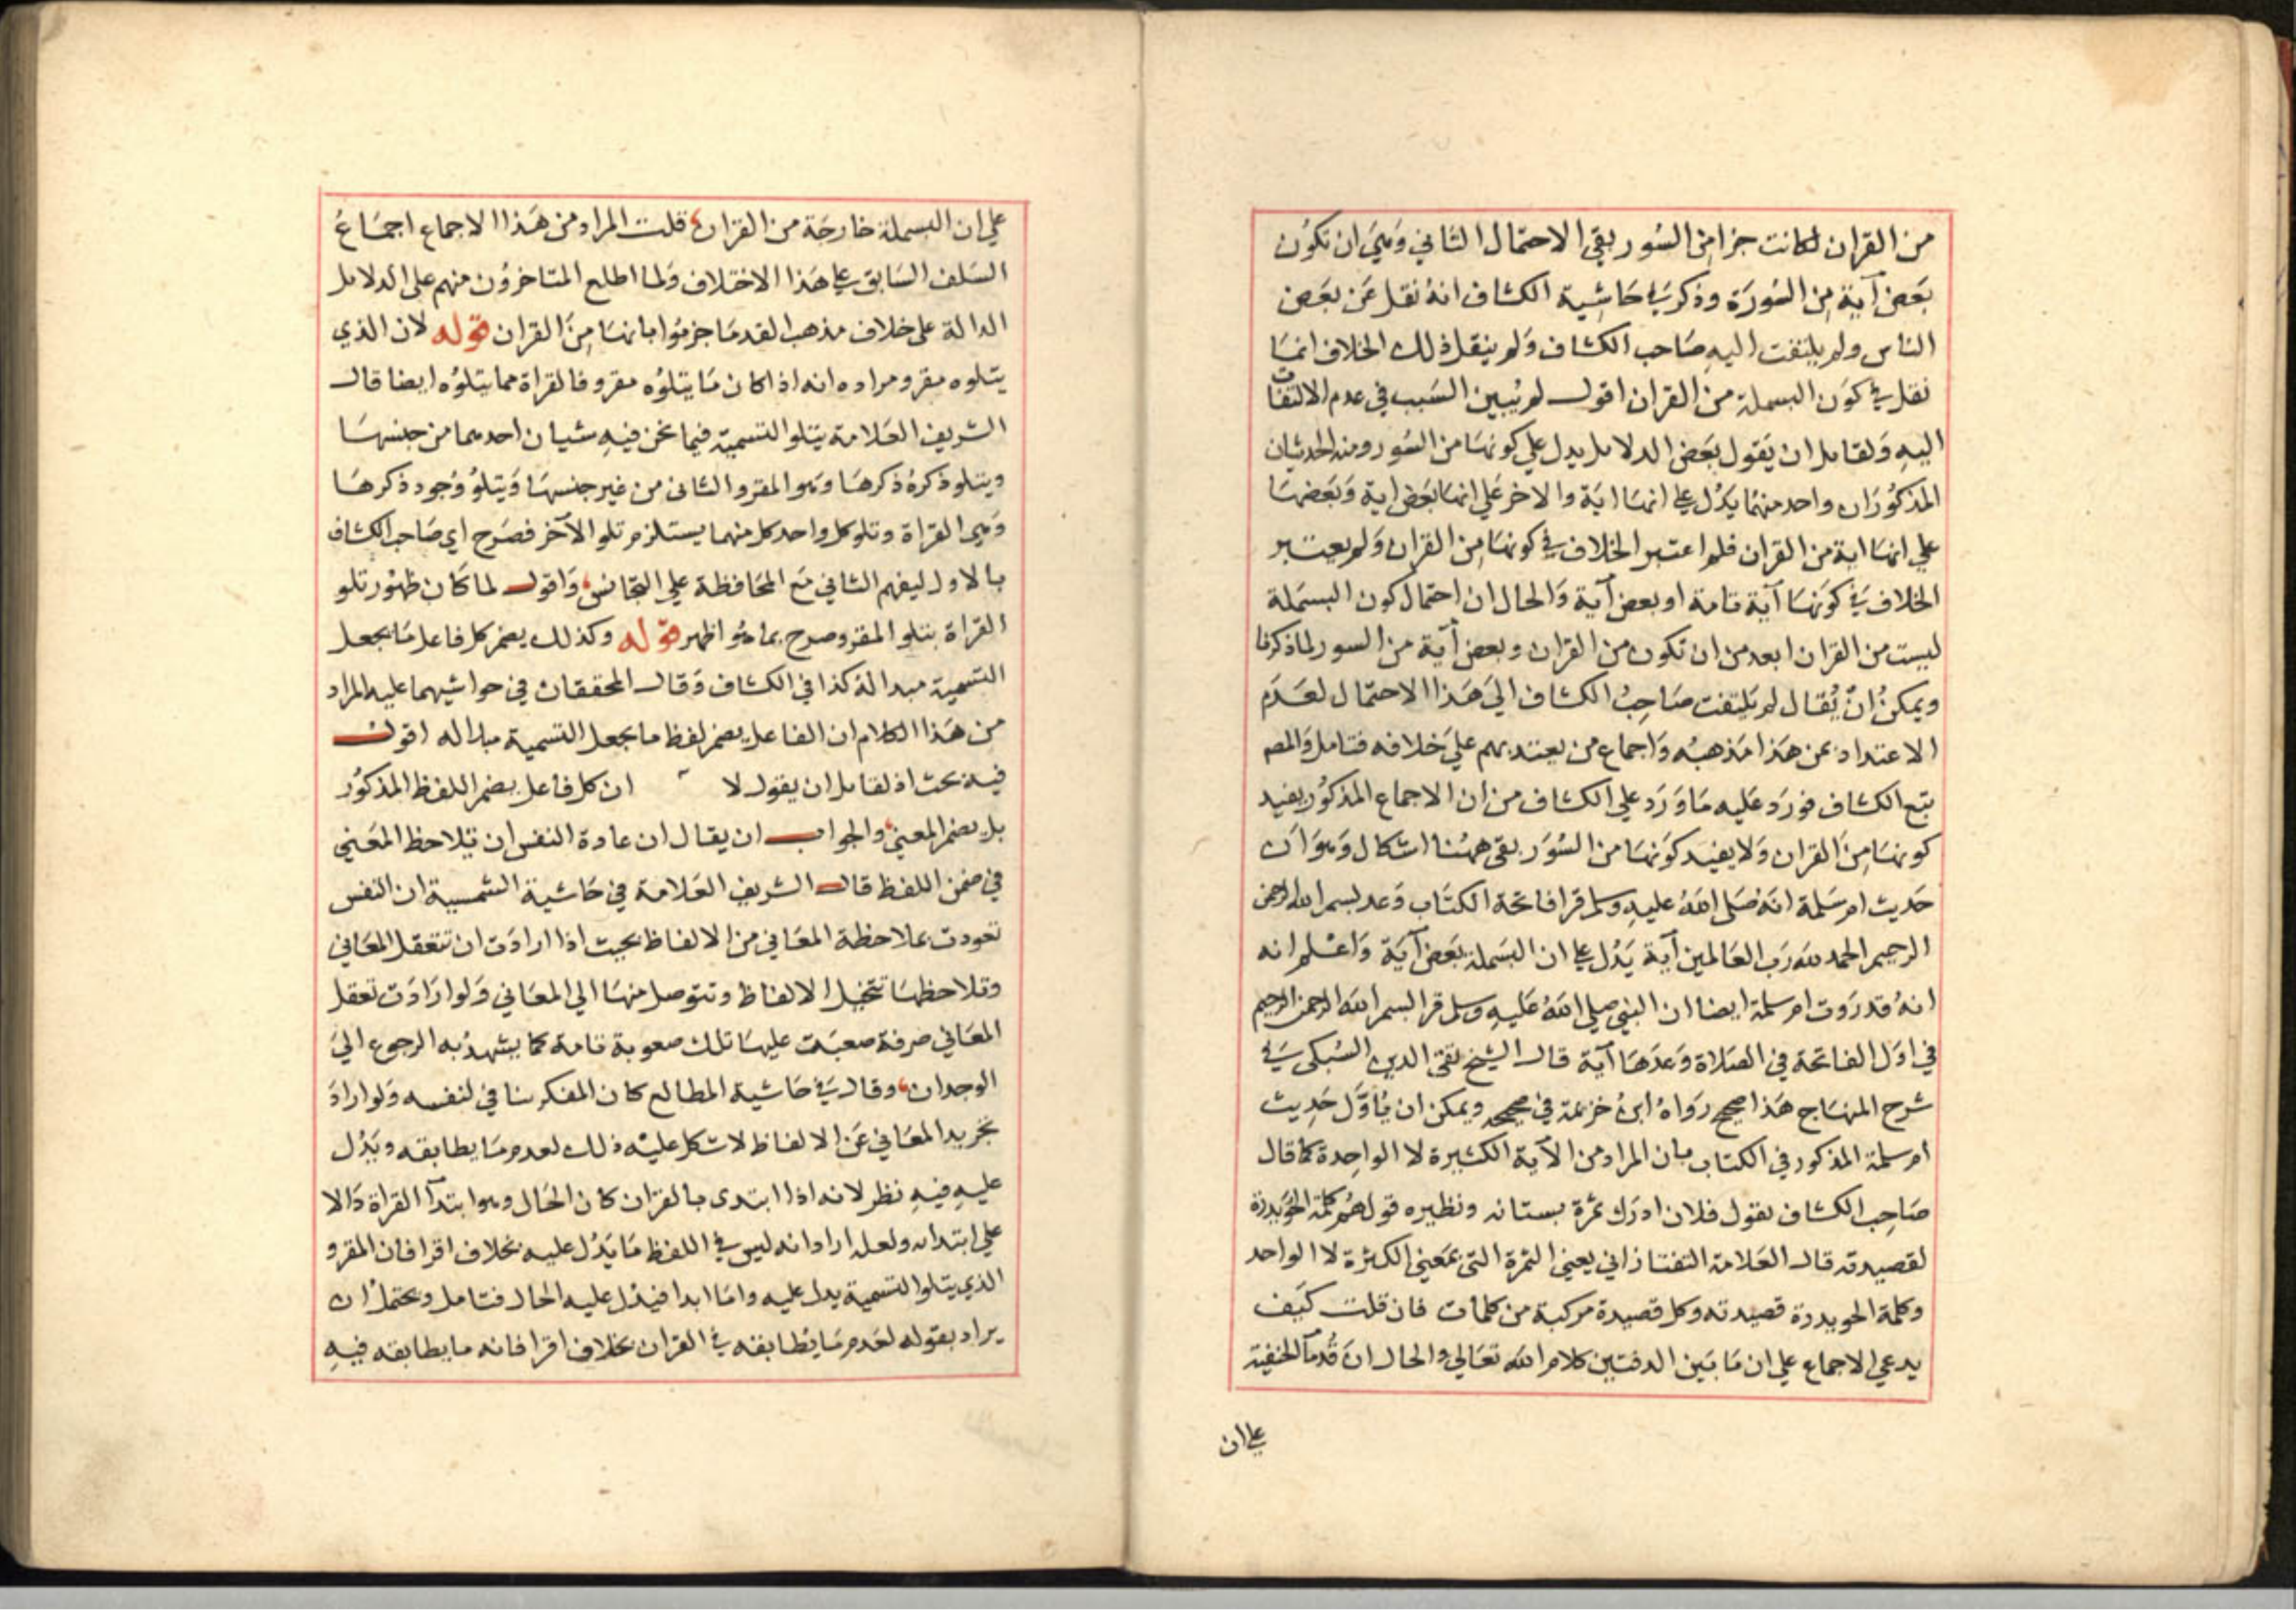 من القران لكانت جزا من السور بقي الاحتمال الثاني وهي ان تكون
بعض آية من السورة وذكر في حاشية الكشاف انه نقل عن بعض
الناس ولم يلتفت اليه صاحب الكشاف ولم ينقل ذلك الخلاف انما
نقل في كون البسملة من القران اقول لم يبين السبب في عدم الالتفات
اليه ولقايل ان يقول بعض الدلايل يدل علي كونها من السور ومنه الحديثان
المذكوران واحد منهما يدل علي انها اية والاخر علي انها بعض اية وبعضها
علي انها اية من القران فلم اعتبر الخلاف في كونها من القران ولم يعتبر
الخلاف في كونها آية تامة او بعض آية والحال ان احتمال كون البسملة
ليست من القران ابعد من ان تكون من القران وبعض آية من السور لما ذكرنا
ويمكن ان يقال لم يلتفت صاحب الكشاف الي هذا الاحتمال لعدم
الاعتداد بمن هذا مذهبه واجماع من يعتد بهم علي خلافه فتامل والمص
تبع الكشاف فورد عليه ما ورد علي الكشاف من ان الاجماع المذكور يفيد
كونها من القران ولا يفيد كونها من السور بقي ههنا اشكال وهو ان
حديث ام سلمة انه صلى الله عليه وسلم قرا فاتحة الكتاب وعد بسم الله الرحمن
الرحيم الحمد لله رب العالمين آية يدل علي ان البسملة بعض آية واعلم انه
انه قد روت ام سلمة ايضا ان النبي صلي الله عليه وسلم قرا بسم الله الرحمن الرحيم
في اول الفاتحة في الصلاة وعدها آية قال الشيخ تقي الدين السبكي في
شرح المنهاج هذا صحيح رواه ابن خزيمة في صحيحه ويمكن ان يأول حديث
ام سلمة المذكور في الكتاب بان المراد من الآية الكثيرة لا الواحدة كما قال
صاحب الكشاف يقول فلان ادرك ثمرة بستانه ونظيره قولهم كلمة الحويدرة
لقصيدته قال العلامة التفتازاني يعني الثمرة التي بمعني الكثرة لا الواحد
وكلمة الحويدرة قصيدته وكل قصيدة مركبة من كلمات فان قلت كيف
يدعي الاجماع علي ان ما بين الدفتين كلام الله تعالي والحال ان قدما الحنفية
علي ان
علي ان البسملة خارجة من القران قلت المراد من هذا الاجماع اجماع
السلف السابق علي هذا الاختلاف ولما اطلع المتاخرون منهم علي الدلايل
الدالة علي خلاف مذهب القدما جزموا بانها من القران قوله لان الذي
يتلوه مقرو مراده انه اذا كان ما يتلوه مقرو فالقراة مما يتلوه ايضا قال
الشريف العلامة يتلو التسمية فيما نحن فيه شيان احدهما من جنسها
ويتلو ذكره ذكرها وهو المقرو والثاني من غير جنسها ويتلو وجود ذكرها
وهي القراة وتلو كل واحد كل منهما يستلزم تلو الآخر فصرح اي صاحب الكشاف
بالاول ليفهم الثاني مع المحافظة علي التجانس واقول لما كان ظهور تلو
القراة بتلو المقرو صرح بما هو اظهر قوله وكذلك يضمر كل فاعل ما يجعل
التسمية مبدا له كذا في الكشاف وقال المحققان في حواشيهما عليه المراد
من هذا الكلام ان الفاعل يضمر لفظ ما يجعل التسمية مبدا له اقول
فيه بحث اذ لقايل ان يقول لا ان كل فاعل يضمر اللفظ المذكور
بل يضمر المعني والجواب ان يقال ان عادة النفس ان تلاحظ المعني
في ضمن اللفظ قال الشريف العلامة في حاشية الشمسية ان النفس
تعودت بملاحظة المعاني من الالفاظ بحيث اذا ارادت ان تتعقل المعاني
وتلاحظها تتخيل الالفاظ وتتوصل منها الي المعاني ولو ارادت تعقل
المعاني صرفة صعبت عليها تلك صعوبة تامة كما يشهد به الرجوع الي
الوجدان وقال في حاشية المطالع كان المفكر يناجي لنفسه ولو اراد
تجريد المعاني عن الالفاظ لاشكل عليه ذلك لعدم ما يطابقه ويدل
عليه فيه نظر لانه اذا ابتدى بالقران كان الحال وهو ابتدا القراة دالا
علي ابتدائه ولعله اراد انه ليس في اللفظ ما يدل عليه بخلاف اقرا فان المقرو
الذي يتلو التسمية يدل عليه واما ابدا فيدل عليه الحال فتامل ويحتمل ان
يراد بقوله لعدم ما يطابقه في القران بخلاف اقرا فانه ما يطابقه فيه